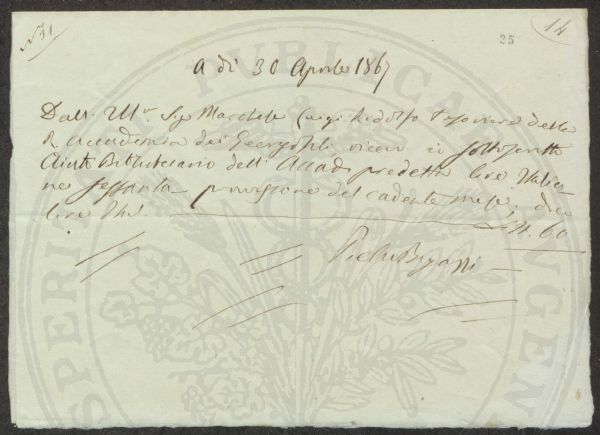 N 31
14
25
A dì 30 Aprile 1867
Dall' Ill. Sig. Marchese Luigi Ridolfo Tesoriere della
R. Accademia dei Georgofili ricevo io sottoscritto
Aiuto Bibliotecario dell' Accad. predetta lire Italia-
ne sessanta provvisione del cadente mese; dico
lire It. 60
PUBLICA